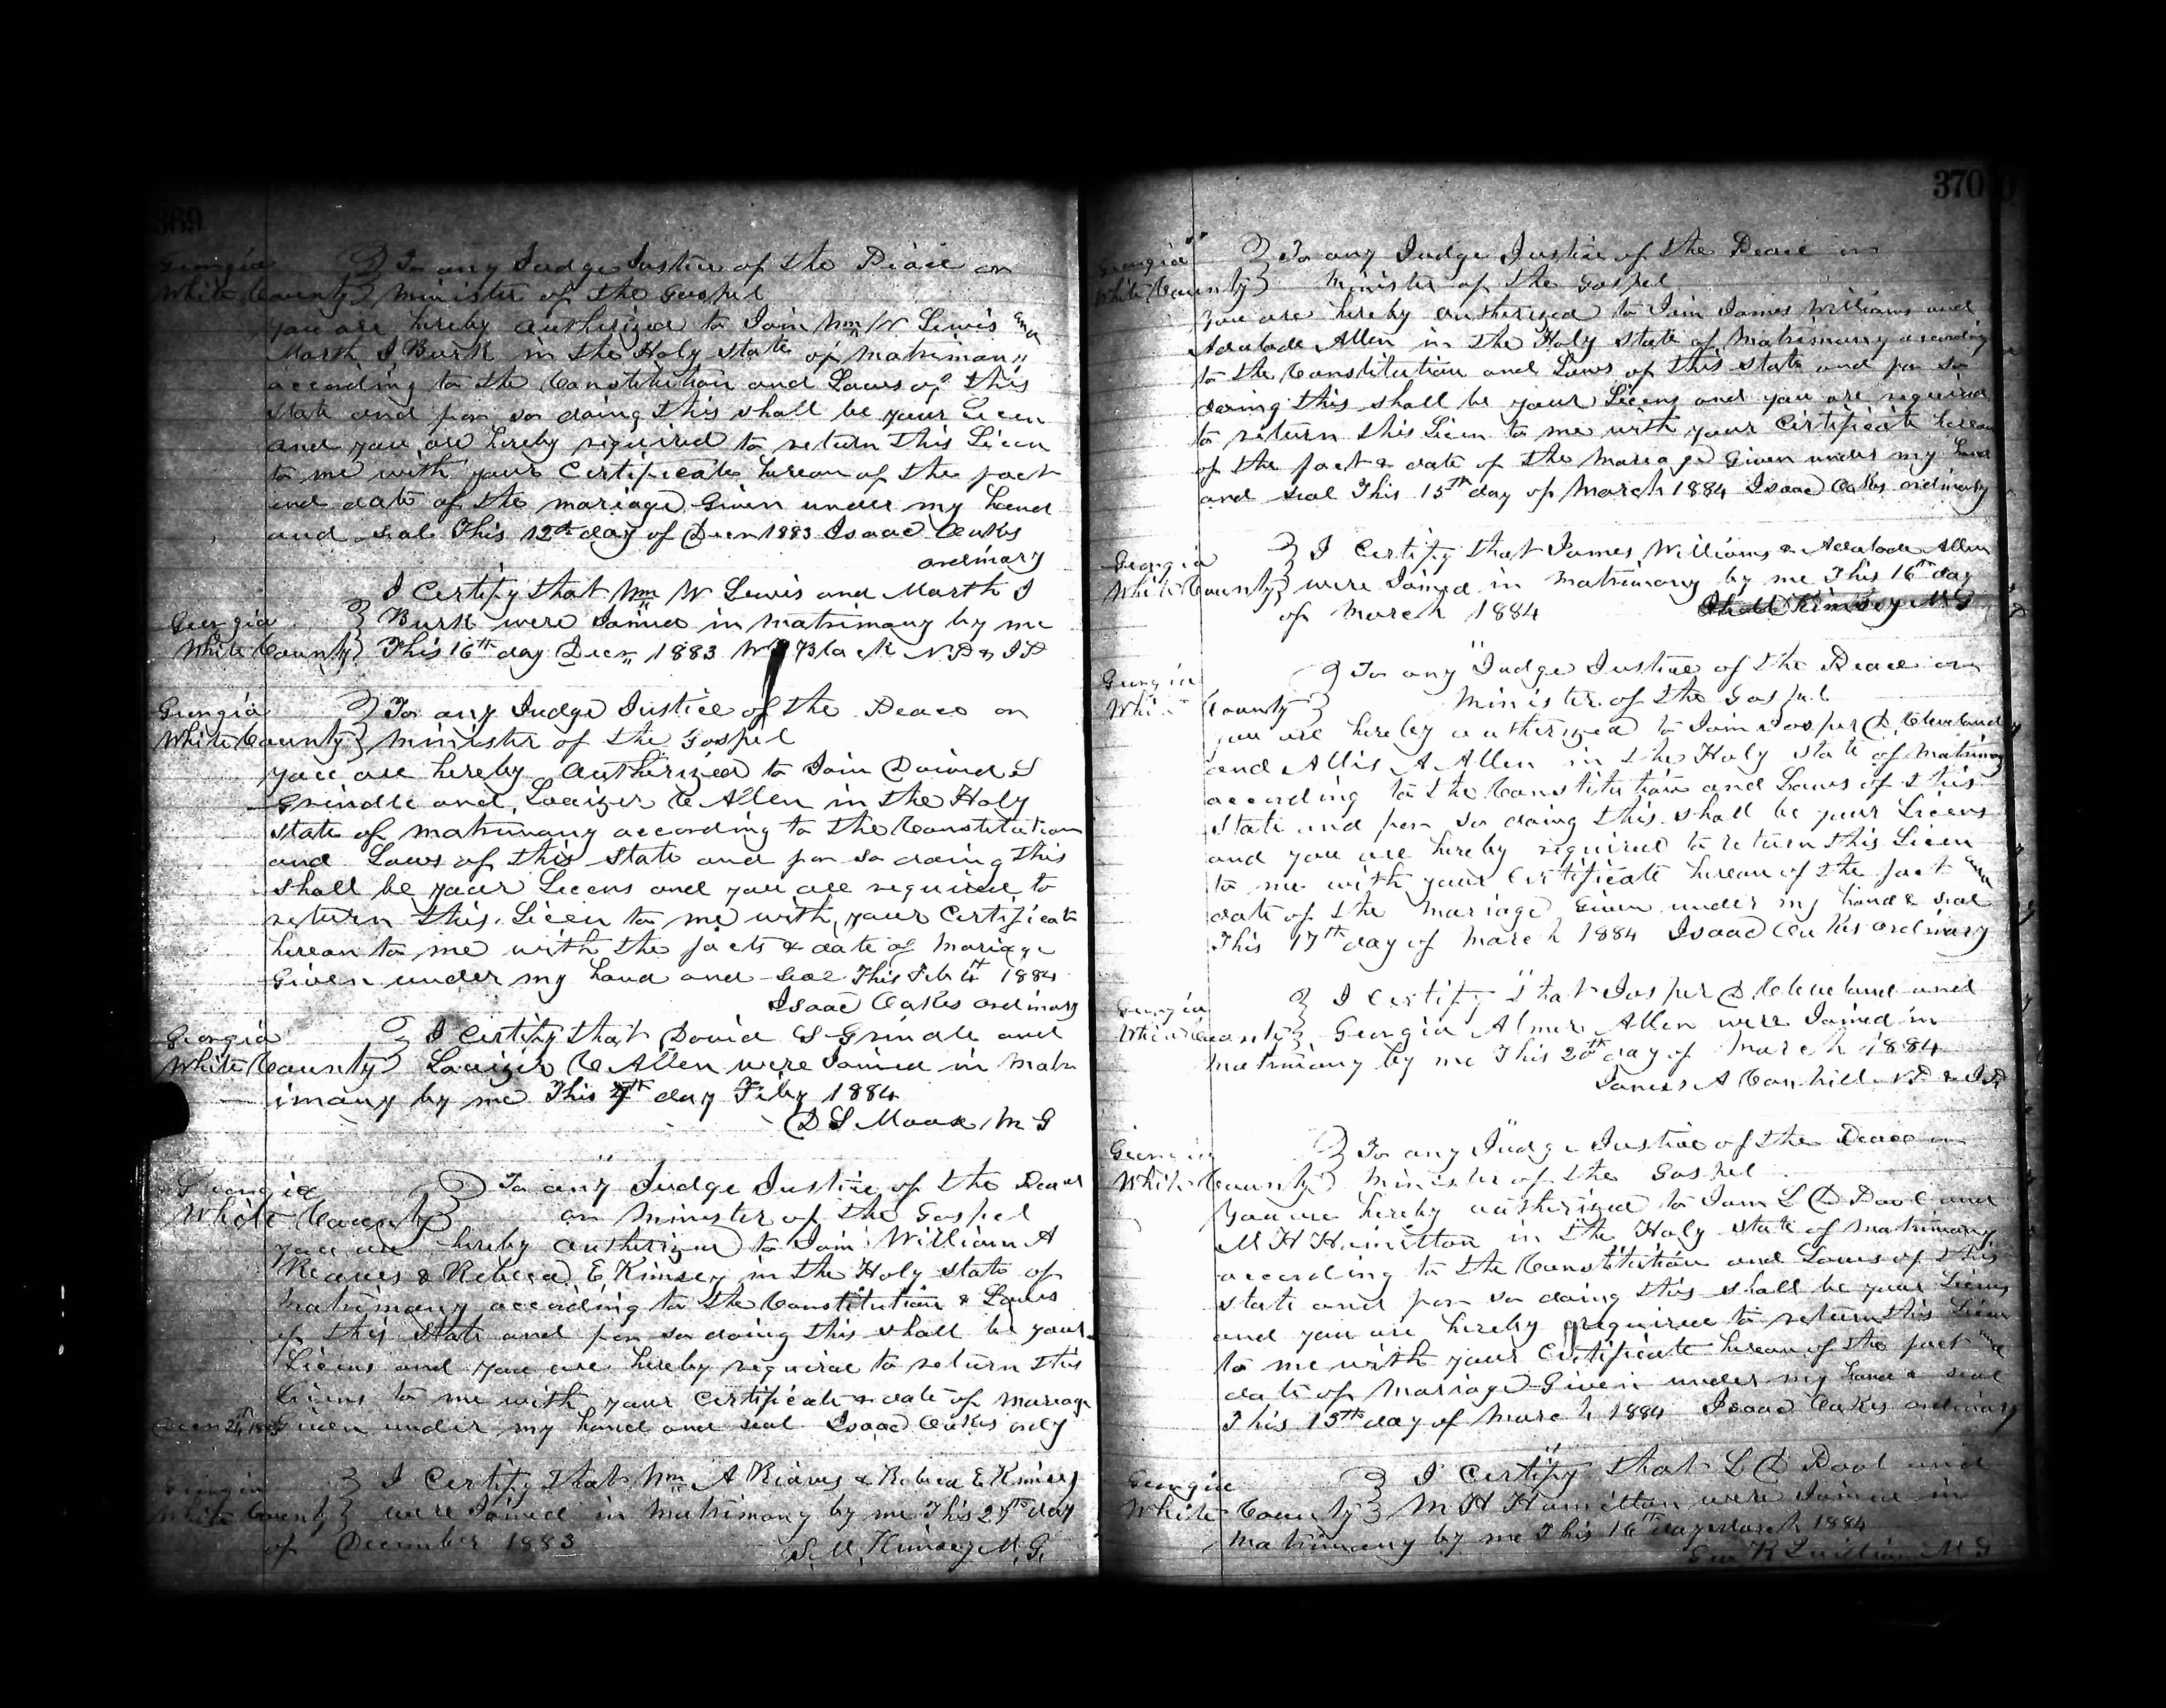 369
Georgia } To any Judge Justice of the Peace or
White County } Minister of the Gospel
you are hereby Autherized to Join Wm W Lewis and
Marth J Burk in the Holy state of Matrimony
according to the Constitution and Laws of this
state and for so doing this shall be your Licen
and you are hereby required to return this Licen
to me with your Certificate hereon of the fact
and date of the mariage Given under my hand
and seal This 12th day of Decm 1883 Isaac Oakes
ordinary
I Certify that Wm W Lewis and Marth J
Georgia } Burk were Joined in matrimony by me
White County } This 16th day Decm 1883 Black N.P & J P
Georgia } To any Judge Justice of the Peace or
White County } Minister of the Gospel
you are hereby Autherized to Join David S
Grindle and Louizer C Allen in the Holy
state of matrimony according to the Constitution
and Laws of this state and for so doing this
shall be your Licens and you are required to
return this Licen to me with your Certificate
hereon to me with the facts & date of Mariage
Given under my hand and seal This Feb 4th 1884
Isaac Oakes ordinary
Georgia } I Certify that David S Grindle and
White County } Louizer C Allen were Joined in Matr
imony by me This 7th day Feby 1884
D S Moore M G
Georgia } To any Judge Justice of the Peace
White County } or Minister of the Gospel
you are hereby Autherized to Join William A
Reaves & Rebeca E Kimsey in the Holy state of
Matrimony according to the Constitution & Laws
of this State and for so doing this shall be your
Licens and you are hereby required to return this
Licens to me with your Certificate & date of Mariage
Decm 24th 1883 Given under my hand and seal Isaac Oakes ordy
Georgia } I Certify that Wm A Reaves & Rebeca E Kimsey
White County } were Joined in Matrimony by me This 27th day
of December 1883 S. M. Kimsey M. G.
370
Georgia } To any Judge Justice of the Peace or
White County } Minister of the Gospel
you are hereby autherized to Join James Williams and
Adalade Allen in the Holy state of Matrimony according
to the Constitution and Laws of this state and for so
doing this shall be your Licens and you are required
to return this Licen to me with your Certificate hereon
of the fact & date of the Mareage Given under my hand
and seal This 15th day of March 1884 Isaac Oakes ordinary
Georgia } I Certify that James Williams & Adalade Allen
White County } were Joined in Matrimony by me This 16th day
of March 1884 Kimsey M G
Georgia } To any Judge Justice of the Peace or
White County } Minister of the Gospel
you are hereby autherized to Join Josper D Cleveland
and Allis A Allen in the Holy state of Matrimony
according to the Constitution and Laws of this
State and for so doing this shall be your Licens
and you are hereby required to return this Licen
to me with your Certificate hereon of the fact and
date of the Mariage Given under my hand & seal
This 17th day of March 1884 Isaac Oakes ordinary
Georgia } I Certify that Josper D Cleveland and
White County } Georgia Almer Allen were Joined in
matrimony by me This 20th day of March 1884
James A N.P & J.P
Georgia } To any Judge Justice of the Peace or
White County } Minister of the Gospel
you are hereby autherized to Join L D Dool and
M H Hamilton in the Holy state of matrimony
according to the Constitution and Laws of this
state and for so doing this shall be your Licens
and you are hereby required to return this Licen
to me with your Certificate hereon of the fact and
date of Mariage Given under my hand & seal
This 15th day of March 1884 Isaac Oakes ordinary
Georgia } I Certify that L D Dool and
White County } M H Hamilton were Joined in
matrimony by me This 16th day March 1884
Geo K Quillian M G